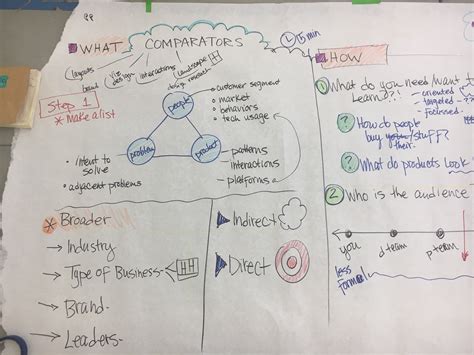 WHAT COMPARATORS
15 min
layouts
brand
viz design
interactions
Landscape
design research
Step 1
* Make a list
people
problem
product
• customer segment
• market
• behaviors
• tech usage
• intent to solve
• adjacent problems
patterns
interactions
platforms
* Broader
→ Industry
→ Type of Business
→ Brand
→ Leaders
Indirect
Direct
HOW
1 What do you need/want
Learned?!
- oriented
- targeted
- focused
? How do people
buy your stuff?
their
? What do products Look
2 Who is the audience
you
d team
p team
less
formal